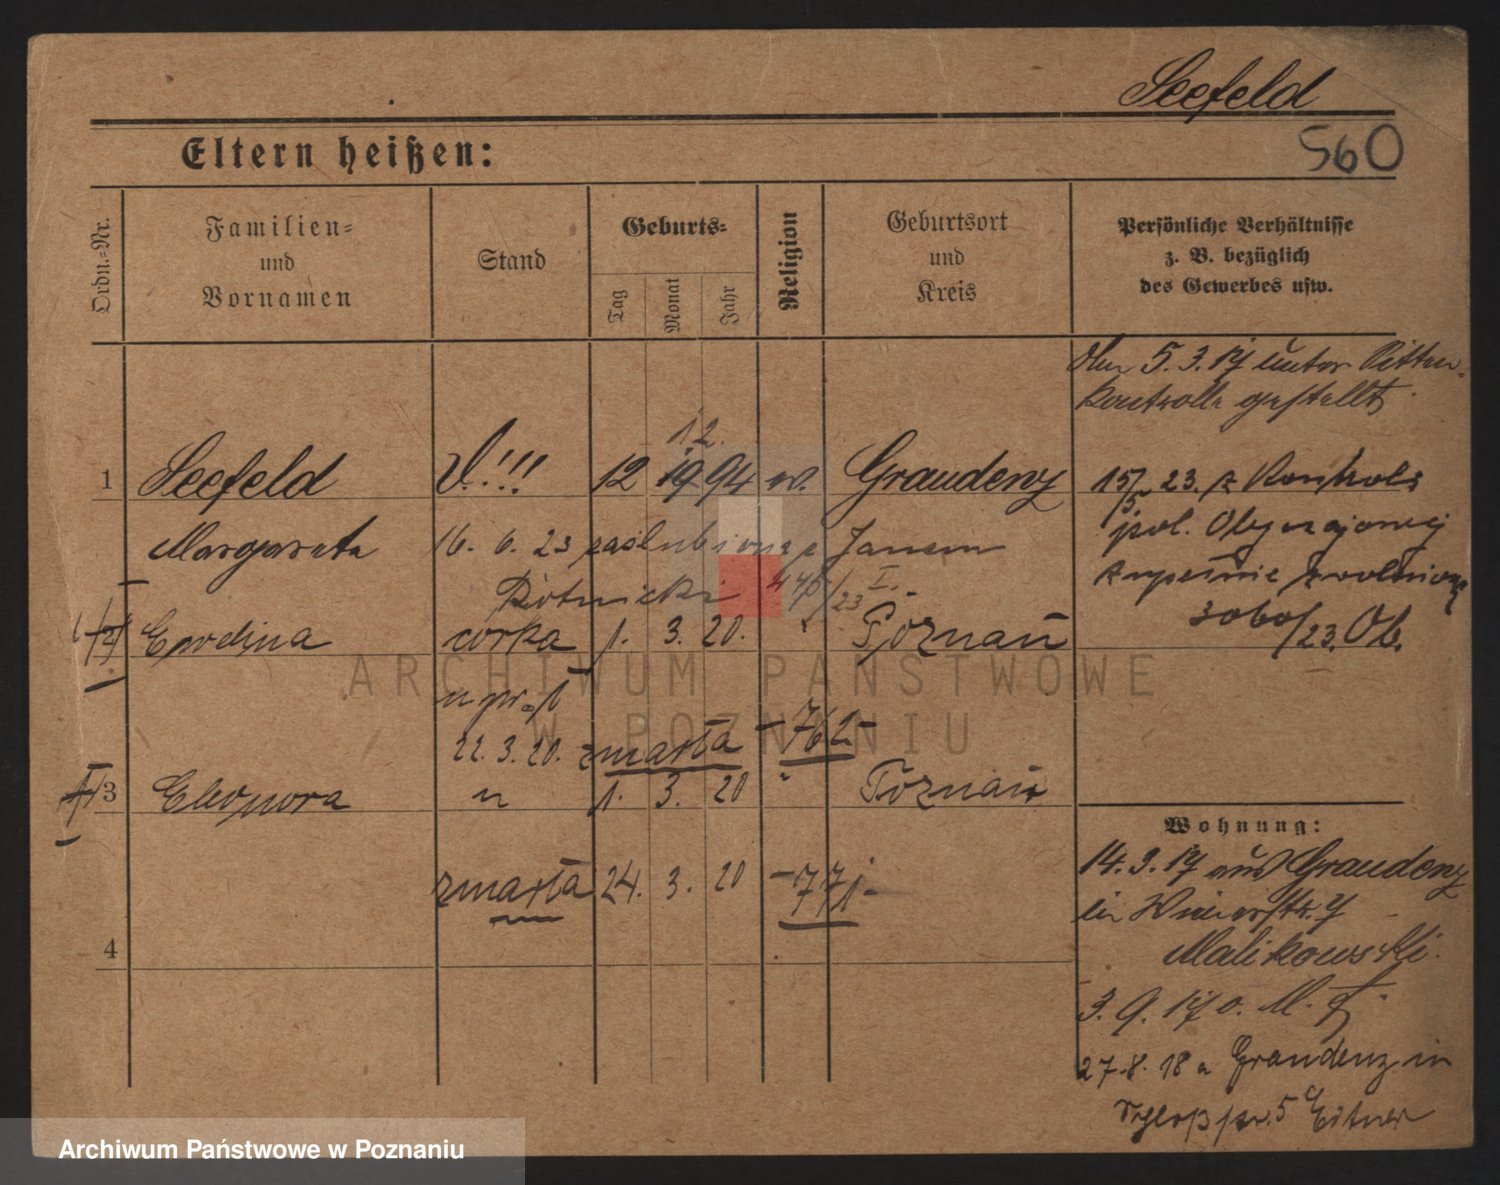 Seefeld
560
Eltern heißen:
Ordn.-Nr.
Familien-
und
Vornamen
Stand
Geburts-
Tag
Monat
Jahr
Religion
Geburtsort
und
Kreis
Persönliche Verhältnisse
z. B. bezüglich
des Gewerbes usw.
5.3.17 unter Sitten-
kontrolle gestellt
12.
1 Seefeld !!! 12 94 Graudenz
15/5 23. z Kontroli
Margareta 16. 6. 23 zaślubiona z Janem
pol. Obyczajowej
zupełnie zwolniona
/23 I.
3060/23. Ob.
2 Ewelina córka 1. 3. 20. Poznań
22. 3. 20. zmarła -762-
3 Eleonora " 1. 3. 20 " Poznań
zmarła 24. 3. 20 -771-
4
Wohnung:
14.3.17 aus Graudenz
in
Malikowski.
3. 9. 17
27.8.18 a Graudenz in
Schloßstr. 5 Eitner
ARCHIWUM PAŃSTWOWE
W POZNANIU
Archiwum Państwowe w Poznaniu